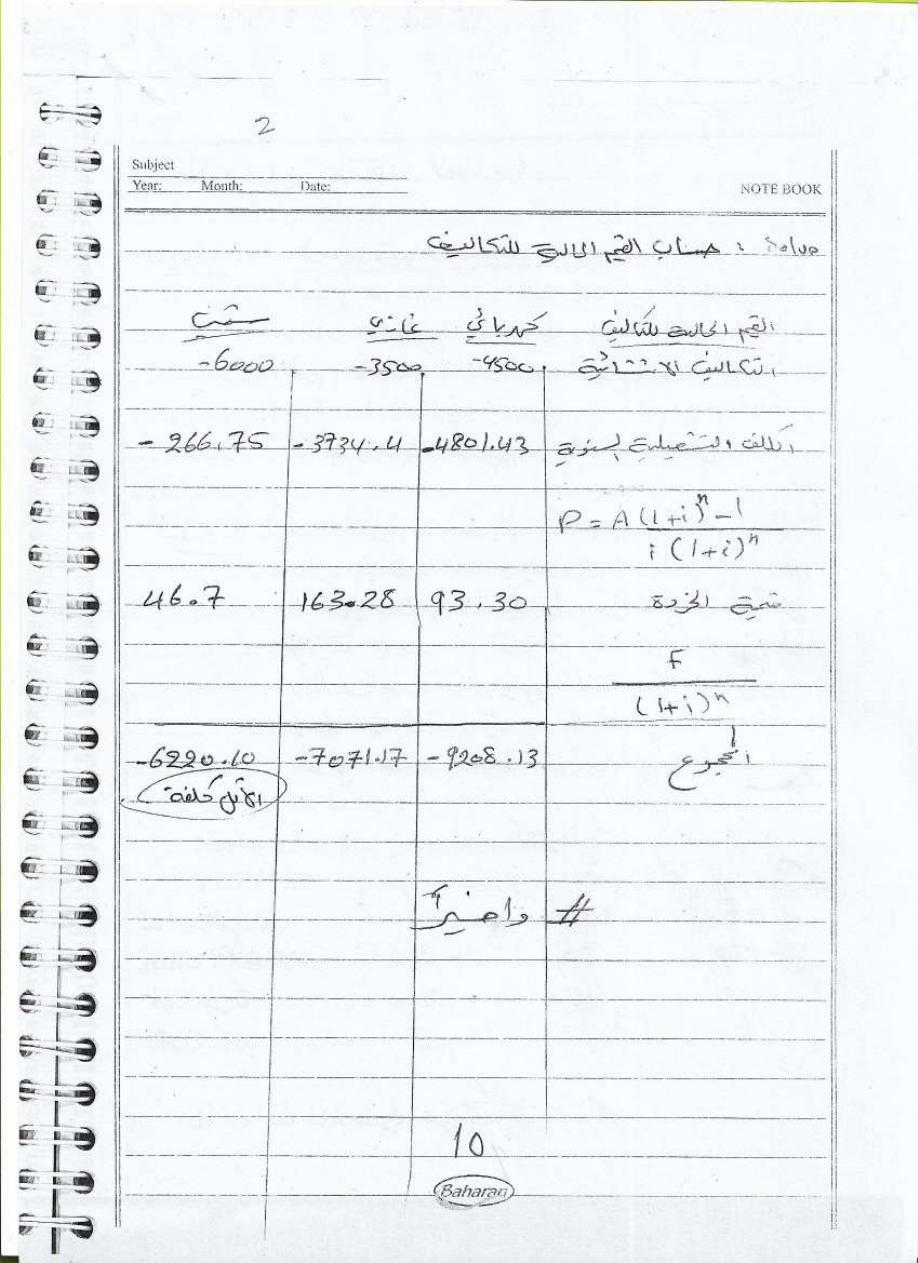 2
Subject
Year: Month: Date:
NOTE BOOK
Solve : حساب القيم الحالية للتكاليف
القيم الحالية للتكاليف كهربائي غازي شمسي
التكاليف الانشائية -4500 -3500 -6000
السنوية -4801.43 -3734.4 -266.75
P = A (1+i)^n - 1
i (1+i)^n
قيمة الخردة 93.30 163.28 46.7
F
(1+i)^n
المجموع -9208.13 -7071.17 -6220.10
الأقل كلفة
# واخيراً
10
Baharan